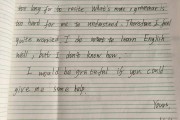 too long for me to recite. What's more, grammar is
too hard for me to understand. Therefore I feel
quite worried. I do want to learn English
well, but I don't know how.
I would be grateful if you could
give me some help.
Yours,